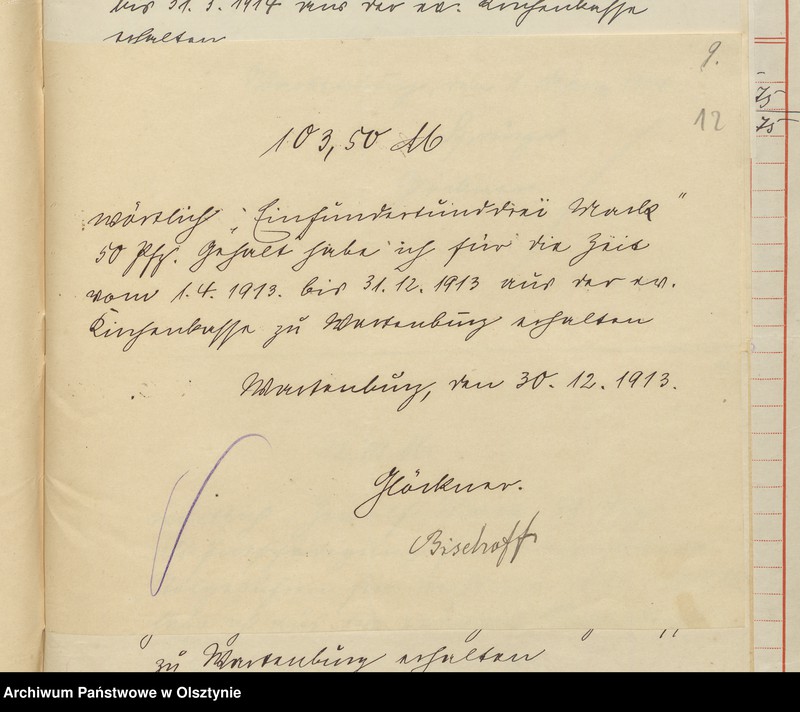 bis 31.3.1914 aus der ev. Kirchenkasse
erhalten
9.
12
75
75
103,50 M
wörtlich „Einhundertunddrei Mark"
50 Pfg. Gehalt habe ich für die Zeit
vom 1.4.1913. bis 31.12.1913 aus der ev.
Kirchenkasse zu Wartenburg erhalten
Wartenburg, den 30.12.1913.
Glöckner.
Bischoff
zu Wartenburg erhalten
Archiwum Państwowe w Olsztynie